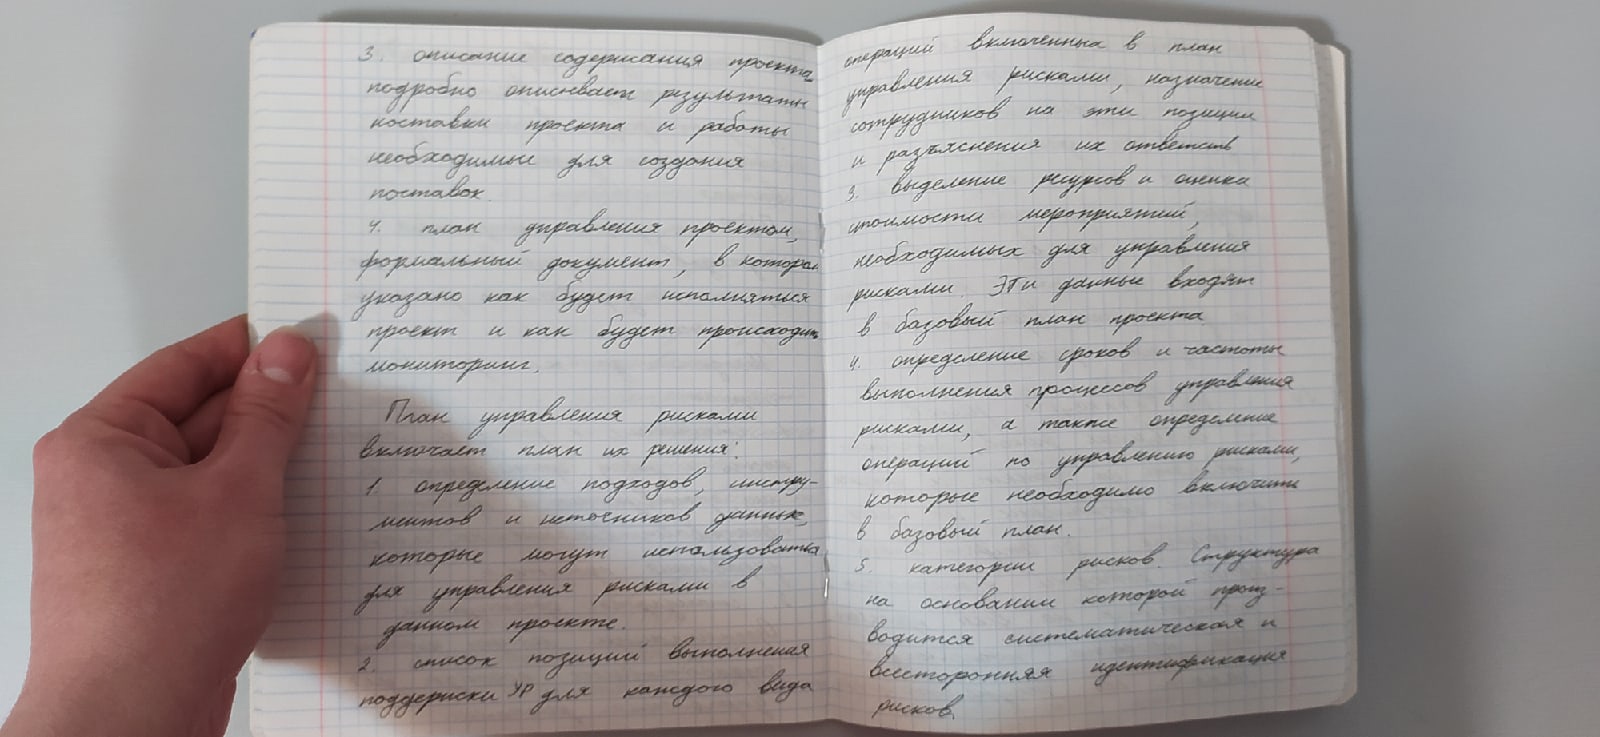 3. описание содержания проекта
подробно описывает результаты
поставки проекта и работы
необходимые для создания
поставок.
4. план управления проектом,
формальный документ, в котором
указано как будет исполняться
проект и как будет происходить
мониторинг.
План управления рисками
включает план их решения:
1. определение подходов, инстру-
ментов и источников данных,
которые могут использоваться
для управления рисками в
данном проекте.
2. список позиций выполнения
поддержки УР для каждого вида
операций включенных в план
управления рисками, назначение
сотрудников на эти позиции
и разъяснения их ответств
3. выделение ресурсов и оценка
стоимости мероприятий,
необходимых для управления
рисками. Эти данные входят
в базовый план проекта
4. определение сроков и частоты
выполнения процессов управления
рисками, а также определение
операций по управлению рисками,
которые необходимо включить
в базовый план.
5. категории рисков. Структура
на основании которой произ-
водится систематическая и
всесторонняя идентификация
рисков.